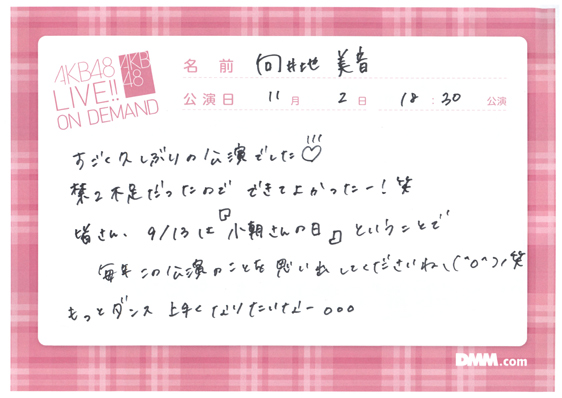 AKB48
LIVE!!
ON DEMAND
AKB
48
名前 向井地 美音
公演日 11月 2日 18:30 公演
すごく久しぶりの公演でした♡
禁2不足だったので できてよかったー!笑
皆さん、9/13は『小朝さんの日』ということで
毎年この公演のことを思い出してくださいね\(^o^)/笑
もっとダンス 上手くなりたいなー。。。
DMM.com